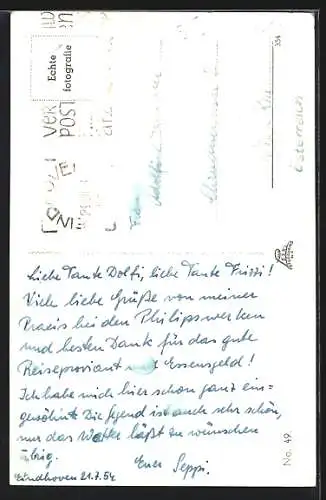 Echte
fotografie
354
VER
POST
Frau
Österreich
Liebe Tante Dolfi, liebe Tante Frizzi!
Viele liebe Grüße von meiner
Praxis bei den Philipswerken
und besten Dank für das gute
Reiseproviant und Essensgeld!
Ich habe mich hier schon ganz ein-
gewöhnt. Die Gegend ist auch sehr schön,
nur das Wetter läßt zu wünschen
übrig. Euer Seppi.
Eindhoven 21.7.54
No. 49.